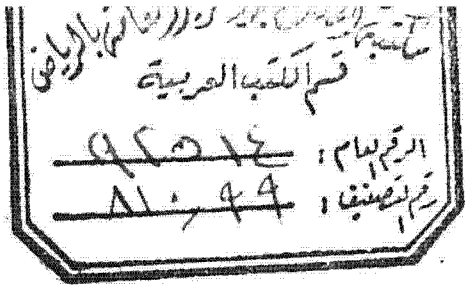 مكتبة بالرياض
قسم الكتب العربية
الرقم العام : ٩٢٥١٤
رقم التصنيف : ٨١٠,٩٩